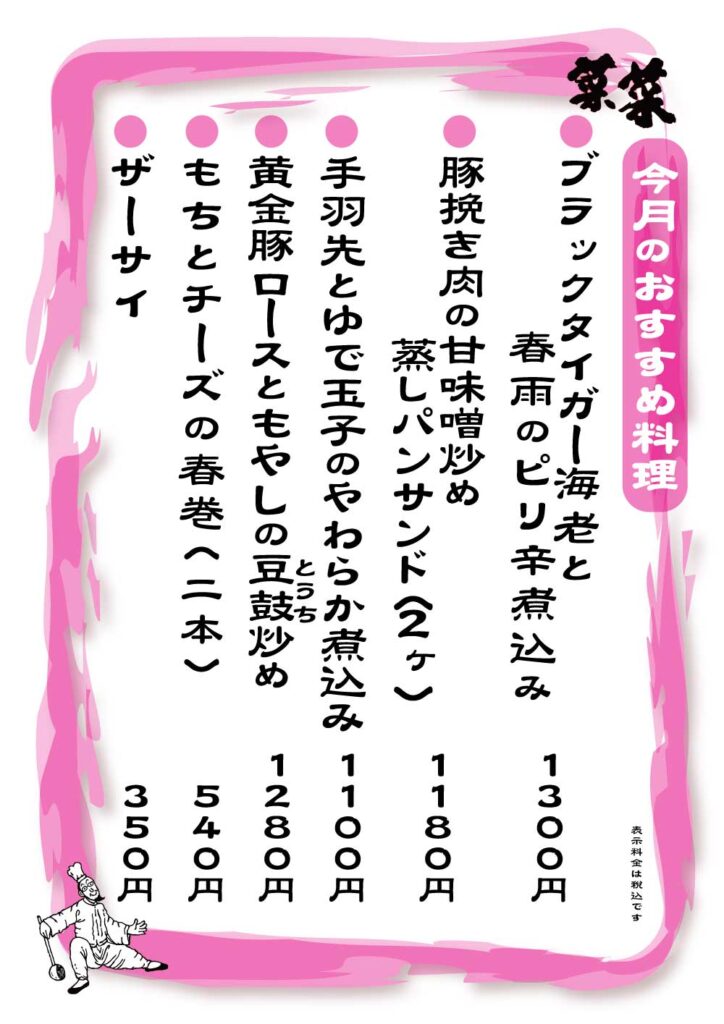 菜菜
今月のおすすめ料理
ブラックタイガー海老と
春雨のピリ辛煮込み
1300円
豚挽き肉の甘味噌炒め
蒸しパンサンド(2ヶ)
1180円
手羽先とゆで玉子のやわらか煮込み
1100円
黄金豚ロースともやしの豆鼓炒め
とうち
1280円
もちとチーズの春巻(二本)
540円
ザーサイ
350円
表示料金は税込です